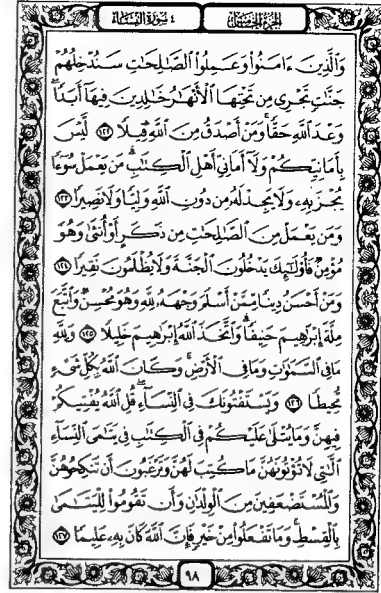 ٤ سورة النساء
الجزء الخامس
وَٱلَّذِينَ ءَامَنُوا۟ وَعَمِلُوا۟ ٱلصَّـٰلِحَـٰتِ سَنُدْخِلُهُمْ
جَنَّـٰتٍ تَجْرِى مِن تَحْتِهَا ٱلْأَنْهَـٰرُ خَـٰلِدِينَ فِيهَآ أَبَدًا ۖ
وَعْدَ ٱللَّهِ حَقًّا ۚ وَمَنْ أَصْدَقُ مِنَ ٱللَّهِ قِيلًا ١٢٢ لَّيْسَ
بِأَمَانِيِّكُمْ وَلَآ أَمَانِىِّ أَهْلِ ٱلْكِتَـٰبِ ۗ مَن يَعْمَلْ سُوٓءًا
يُجْزَ بِهِۦ وَلَا يَجِدْ لَهُۥ مِن دُونِ ٱللَّهِ وَلِيًّا وَلَا نَصِيرًا ١٢٣
وَمَن يَعْمَلْ مِنَ ٱلصَّـٰلِحَـٰتِ مِن ذَكَرٍ أَوْ أُنثَىٰ وَهُوَ
مُؤْمِنٌ فَأُو۟لَـٰٓئِكَ يَدْخُلُونَ ٱلْجَنَّةَ وَلَا يُظْلَمُونَ نَقِيرًا ١٢٤
وَمَنْ أَحْسَنُ دِينًا مِّمَّنْ أَسْلَمَ وَجْهَهُۥ لِلَّهِ وَهُوَ مُحْسِنٌ وَٱتَّبَعَ
مِلَّةَ إِبْرَٰهِيمَ حَنِيفًا ۗ وَٱتَّخَذَ ٱللَّهُ إِبْرَٰهِيمَ خَلِيلًا ١٢٥ وَلِلَّهِ
مَا فِى ٱلسَّمَـٰوَٰتِ وَمَا فِى ٱلْأَرْضِ ۚ وَكَانَ ٱللَّهُ بِكُلِّ شَىْءٍ
مُّحِيطًا ١٢٦ وَيَسْتَفْتُونَكَ فِى ٱلنِّسَآءِ ۖ قُلِ ٱللَّهُ يُفْتِيكُمْ
فِيهِنَّ وَمَا يُتْلَىٰ عَلَيْكُمْ فِى ٱلْكِتَـٰبِ فِى يَتَـٰمَى ٱلنِّسَآءِ
ٱلَّـٰتِى لَا تُؤْتُونَهُنَّ مَا كُتِبَ لَهُنَّ وَتَرْغَبُونَ أَن تَنكِحُوهُنَّ
وَٱلْمُسْتَضْعَفِينَ مِنَ ٱلْوِلْدَٰنِ وَأَن تَقُومُوا۟ لِلْيَتَـٰمَىٰ
بِٱلْقِسْطِ ۚ وَمَا تَفْعَلُوا۟ مِنْ خَيْرٍ فَإِنَّ ٱللَّهَ كَانَ بِهِۦ عَلِيمًا ١٢٧
٩٨